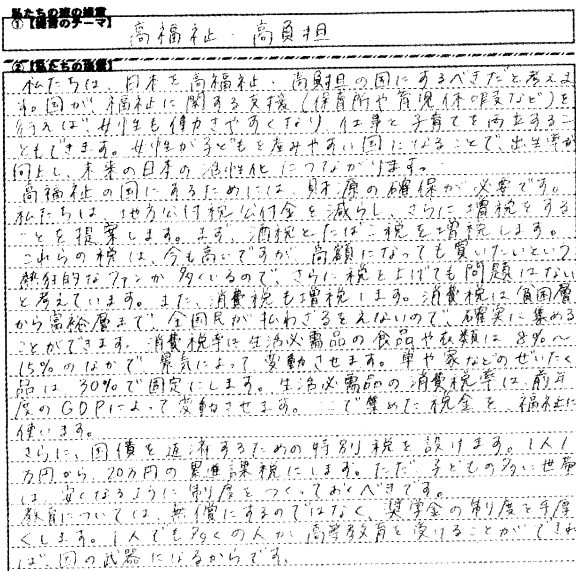 私たちの班の提言
①【提言のテーマ】
高福祉・高負担
②【私たちの提言】
私たちは、日本を高福祉・高負担の国にするべきだと考えま
国が、福祉に関する支援（保育所や育児休暇など）を
行えば、女性も働きやすくなり、仕事と子育てを両立するこ
ともできます。女性が子どもを産みやすい国になることで、出生率が
向上し、未来の日本の活性化につながります。
高福祉の国にするためには、財源の確保が必要です。
私たちは、地方公付税公付金を減らし、さらに増税をする
ことを提案します。まず、酒税とたばこ税を増税します。
これらの税は、今も高いですが、高額になっても買いたいという
熱狂的なファンが多くいるので、さらに税を上げても問題はない
と考えています。また、消費税も増税します。消費税は貧困層
から富裕層まで、全国民が払わざるをえないので、確実に集める
ことができます。消費税率は生活必需品の食品や衣類は8%～
15%のなかで、景気によって変動させます。車や家などのぜいたく
品は30%で固定にします。生活必需品の消費税率は前年
度のGDPによって変動させます。で集めた税金を、福祉に
使います。
さらに、国債を返済するための特別税を設けます。1人1
万円から、20万円の累進課税にします。ただ、子どもの多い世帯
は、安くなるように制度をつくっておくべきです。
教育については、無償にするのではなく、奨学金の制度を手厚
くします。1人でも多くの人が、高等教育を受けることができれ
ば、国の武器になるからです。